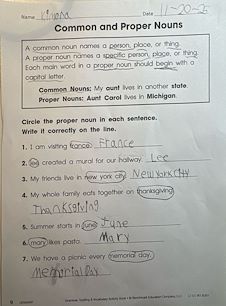 Name
Date 11-20-25
Common and Proper Nouns
A common noun names a person, place, or thing.
A proper noun names a specific person, place, or thing.
Each main word in a proper noun should begin with a
capital letter.
Common Nouns: My aunt lives in another state.
Proper Nouns: Aunt Carol lives in Michigan.
Circle the proper noun in each sentence.
Write it correctly on the line.
1. I am visiting france. France
2. lee created a mural for our hallway. Lee
3. My friends live in new york city. New York City
4. My whole family eats together on thanksgiving.
Thanksgiving
5. Summer starts in june. June
6. mary likes pasta. Mary
7. We have a picnic every memorial day.
Memorial Day